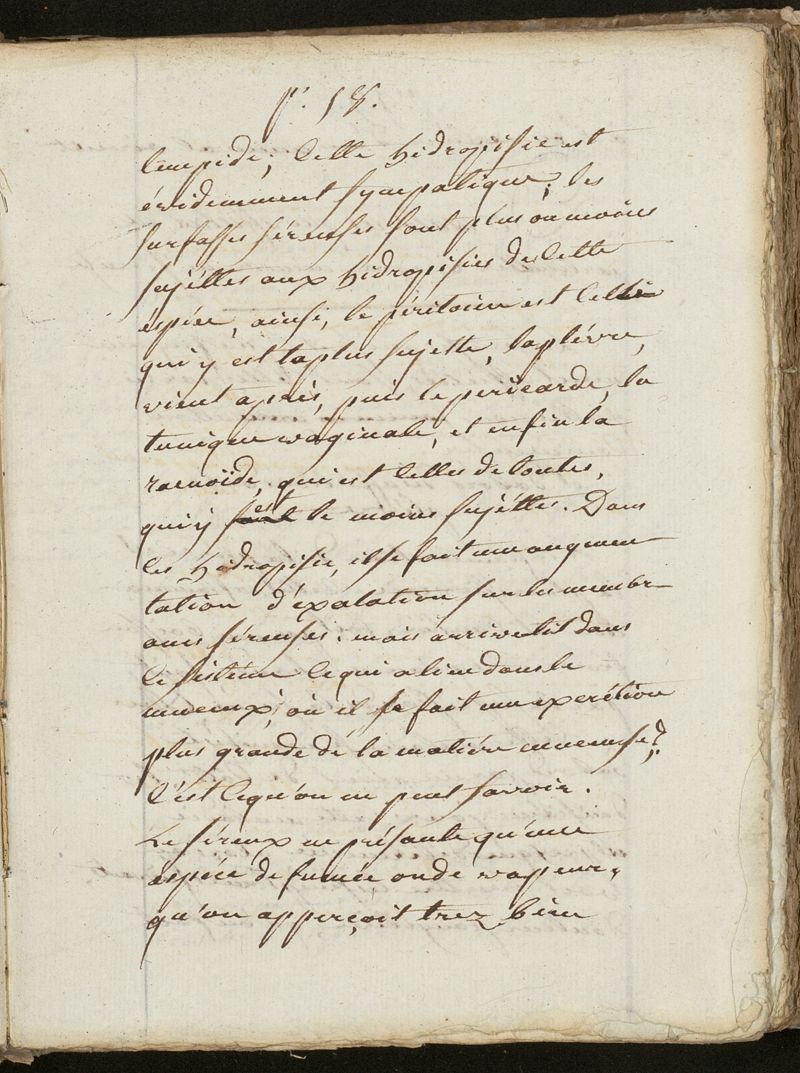 p. 18.
limpide; Cette hidropisie est
évidemment sympatique; les
surfasses séreuses sont plus ou moins
sujéttes aux hidropisies de Cette
éspéce, ainsi, le péritoine est Celle
qui y est la plus sujette, la plévre,
vient aprés, puis le pericarde, la
tunique vaginale, et enfin la
racnoïde, qui est Celles de toutes,
qui y est le moins sujétte. Dans
les hidropisie, il se fait une augmen
tation d'éxalation sur les membr
anes séreuses. mais arrive t il dans
Ce sistéme Ce qui a lieu dans le
muceux, où il se fait une excrétion
plus grande de la matiére muceuse?
C'est Ce qu'on ne peut savoir.
Le séreux ne présante qu'une
éspéce de fumée ou de vapeur,
qu'on apperçoit trez bien